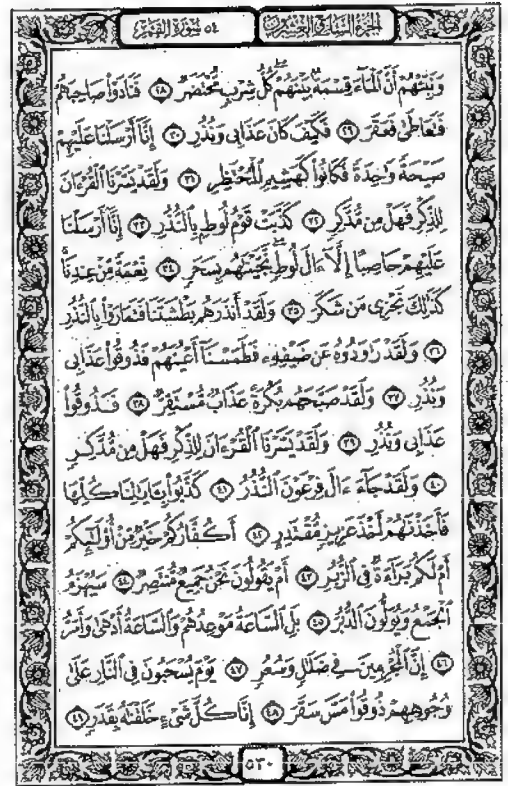 الجزء السابع والعشرون
٥٤ سورة القمر
وَنَبِّئْهُمْ أَنَّ ٱلْمَآءَ قِسْمَةٌۢ بَيْنَهُمْ كُلُّ شِرْبٍ مُّحْتَضَرٌ ٢٨ فَنَادَوْا۟ صَاحِبَهُمْ
فَتَعَاطَىٰ فَعَقَرَ ٢٩ فَكَيْفَ كَانَ عَذَابِى وَنُذُرِ ٣٠ إِنَّآ أَرْسَلْنَا عَلَيْهِمْ
صَيْحَةً وَٰحِدَةً فَكَانُوا۟ كَهَشِيمِ ٱلْمُحْتَظِرِ ٣١ وَلَقَدْ يَسَّرْنَا ٱلْقُرْءَانَ
لِلذِّكْرِ فَهَلْ مِن مُّدَّكِرٍ ٣٢ كَذَّبَتْ قَوْمُ لُوطٍۭ بِٱلنُّذُرِ ٣٣ إِنَّآ أَرْسَلْنَا
عَلَيْهِمْ حَاصِبًا إِلَّآ ءَالَ لُوطٍ نَّجَّيْنَٰهُم بِسَحَرٍ ٣٤ نِّعْمَةً مِّنْ عِندِنَا
كَذَٰلِكَ نَجْزِى مَن شَكَرَ ٣٥ وَلَقَدْ أَنذَرَهُم بَطْشَتَنَا فَتَمَارَوْا۟ بِٱلنُّذُرِ
٣٦ وَلَقَدْ رَٰوَدُوهُ عَن ضَيْفِهِۦ فَطَمَسْنَآ أَعْيُنَهُمْ فَذُوقُوا۟ عَذَابِى
وَنُذُرِ ٣٧ وَلَقَدْ صَبَّحَهُم بُكْرَةً عَذَابٌ مُّسْتَقِرٌّ ٣٨ فَذُوقُوا۟
عَذَابِى وَنُذُرِ ٣٩ وَلَقَدْ يَسَّرْنَا ٱلْقُرْءَانَ لِلذِّكْرِ فَهَلْ مِن مُّدَّكِرٍ
٤٠ وَلَقَدْ جَآءَ ءَالَ فِرْعَوْنَ ٱلنُّذُرُ ٤١ كَذَّبُوا۟ بِـَٔايَٰتِنَا كُلِّهَا
فَأَخَذْنَٰهُمْ أَخْذَ عَزِيزٍ مُّقْتَدِرٍ ٤٢ أَكُفَّارُكُمْ خَيْرٌ مِّنْ أُو۟لَٰٓئِكُمْ
أَمْ لَكُم بَرَآءَةٌ فِى ٱلزُّبُرِ ٤٣ أَمْ يَقُولُونَ نَحْنُ جَمِيعٌ مُّنتَصِرٌ ٤٤ سَيُهْزَمُ
ٱلْجَمْعُ وَيُوَلُّونَ ٱلدُّبُرَ ٤٥ بَلِ ٱلسَّاعَةُ مَوْعِدُهُمْ وَٱلسَّاعَةُ أَدْهَىٰ وَأَمَرُّ
٤٦ إِنَّ ٱلْمُجْرِمِينَ فِى ضَلَٰلٍ وَسُعُرٍ ٤٧ يَوْمَ يُسْحَبُونَ فِى ٱلنَّارِ عَلَىٰ
وُجُوهِهِمْ ذُوقُوا۟ مَسَّ سَقَرَ ٤٨ إِنَّا كُلَّ شَىْءٍ خَلَقْنَٰهُ بِقَدَرٍ ٤٩
٥٣٠